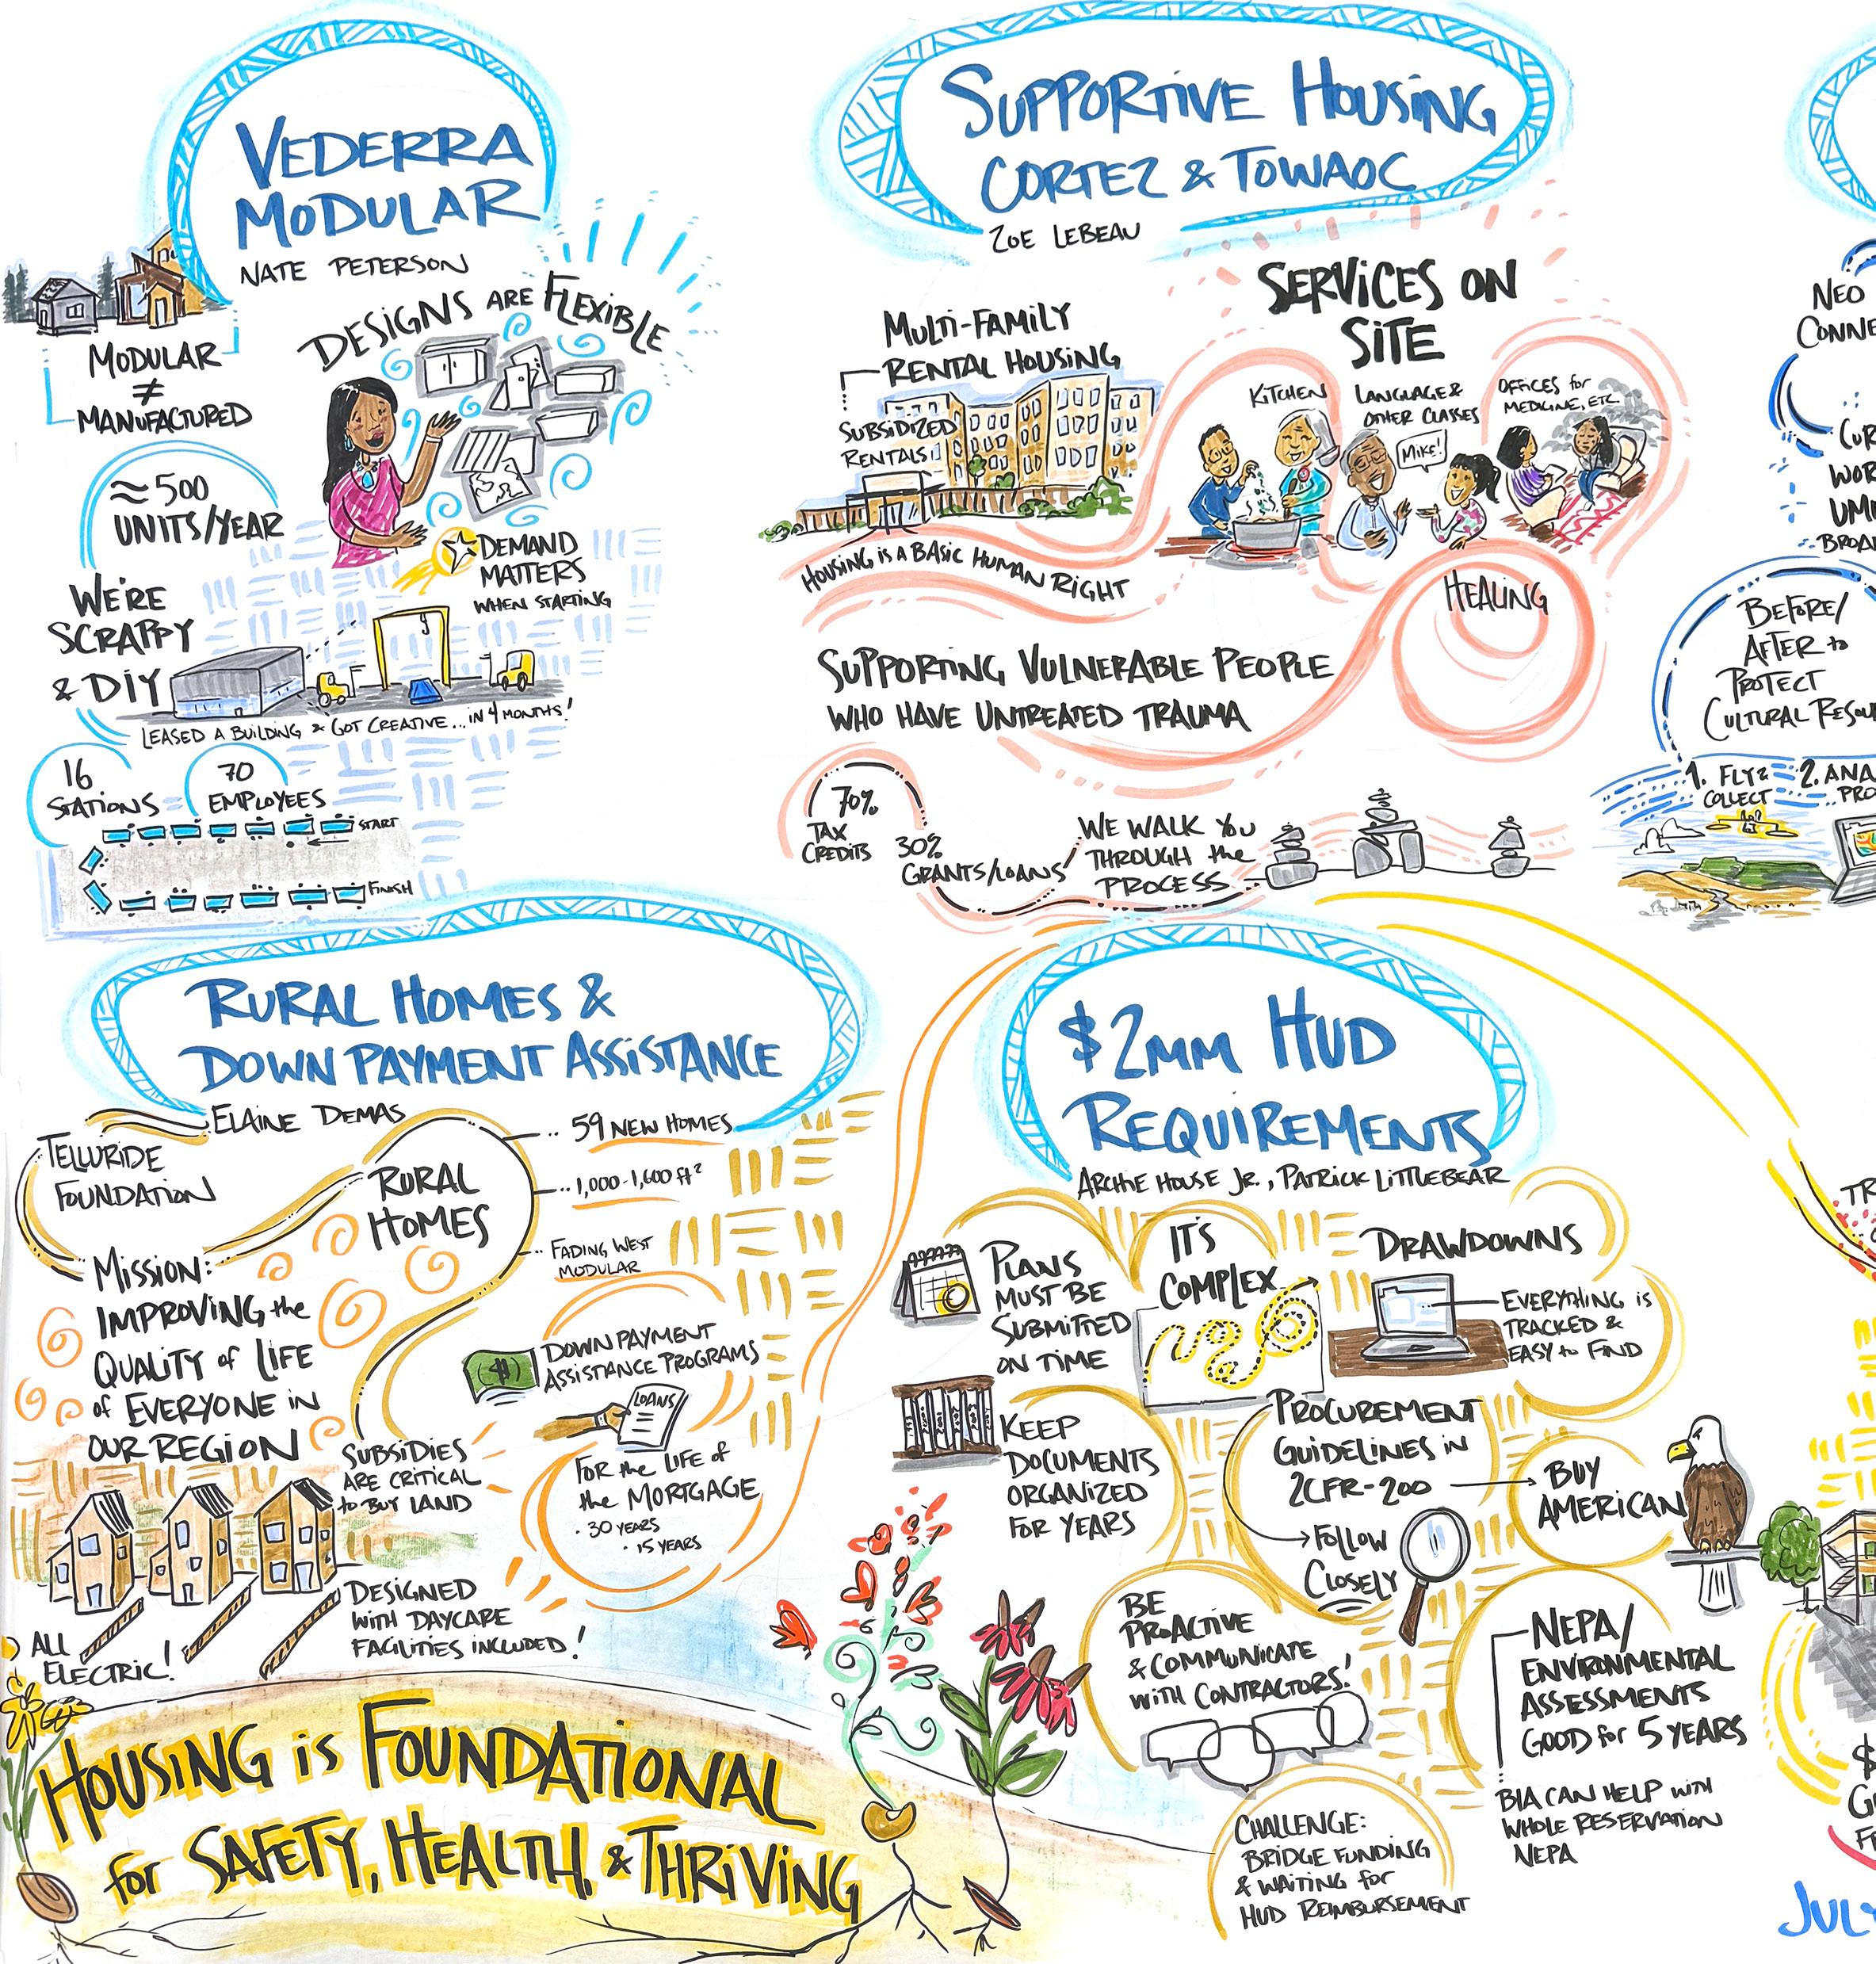 VEDERRA
MODULAR
NATE PETERSON
DESIGNS ARE FLEXIBLE
MODULAR
≠
MANUFACTURED
≈ 500
UNITS/YEAR
DEMAND
MATTERS
WHEN STARTING
WE'RE
SCRAPPY
& DIY
LEASED A BUILDING & GOT CREATIVE... IN 4 MONTHS!
16
STATIONS
70
EMPLOYEES
START
FINISH
SUPPORTIVE HOUSING
CORTEZ & TOWAOC
ZOE LEBEAU
MULTI-FAMILY
RENTAL HOUSING
SUBSIDIZED
RENTALS!
SERVICES ON
SITE
KITCHEN
LANGUAGE &
OTHER CLASSES
MIKE!
OFFICES for
MEDICINE, ETC.
HOUSING IS A BASIC HUMAN RIGHT
HEALING
SUPPORTING VULNERABLE PEOPLE
WHO HAVE UNTREATED TRAUMA
70%
TAX
CREDITS
30%
GRANTS/LOANS
WE WALK YOU
THROUGH the
PROCESS
NEO
CONNE
CUR
WOR
UM
BROA
BEFORE/
AFTER to
PROTECT
CULTURAL RESOU
1. FLY &
COLLECT
2. ANA
PRO
RURAL HOMES &
DOWN PAYMENT ASSISTANCE
ELAINE DEMAS
TELLURIDE
FOUNDATION
RURAL
HOMES
59 NEW HOMES
1,000-1,600 ft²
FADING WEST
MODULAR
MISSION:
IMPROVING the
QUALITY of LIFE
of EVERYONE IN
OUR REGION
DOWN PAYMENT
ASSISTANCE PROGRAMS
$
LOANS
FOR the LIFE of
the MORTGAGE
• 30 YEARS
• 15 YEARS
SUBSIDIES
ARE CRITICAL
to BUY LAND
DESIGNED
WITH DAYCARE
FACILITIES INCLUDED!
ALL
ELECTRIC!
HOUSING is FOUNDATIONAL
for SAFETY, HEALTH, & THRIVING
$2MM HUD
REQUIREMENTS
ARCHIE HOUSE JR., PATRICK LITTLEBEAR
PLANS
MUST BE
SUBMITTED
ON TIME
IT'S
COMPLEX
DRAWDOWNS
EVERYTHING IS
TRACKED &
EASY to FIND
KEEP
DOCUMENTS
ORGANIZED
FOR YEARS
PROCUREMENT
GUIDELINES IN
2CFR-200
BUY
AMERICAN
FOLLOW
CLOSELY
BE
PROACTIVE
& COMMUNICATE
WITH CONTRACTORS!
NEPA/
ENVIRONMENTAL
ASSESSMENTS
GOOD for 5 YEARS
BIA CAN HELP with
WHOLE RESERVATION
NEPA
CHALLENGE:
BRIDGE FUNDING
& WAITING for
HUD REIMBURSEMENT
TR
$
G
F
JULY